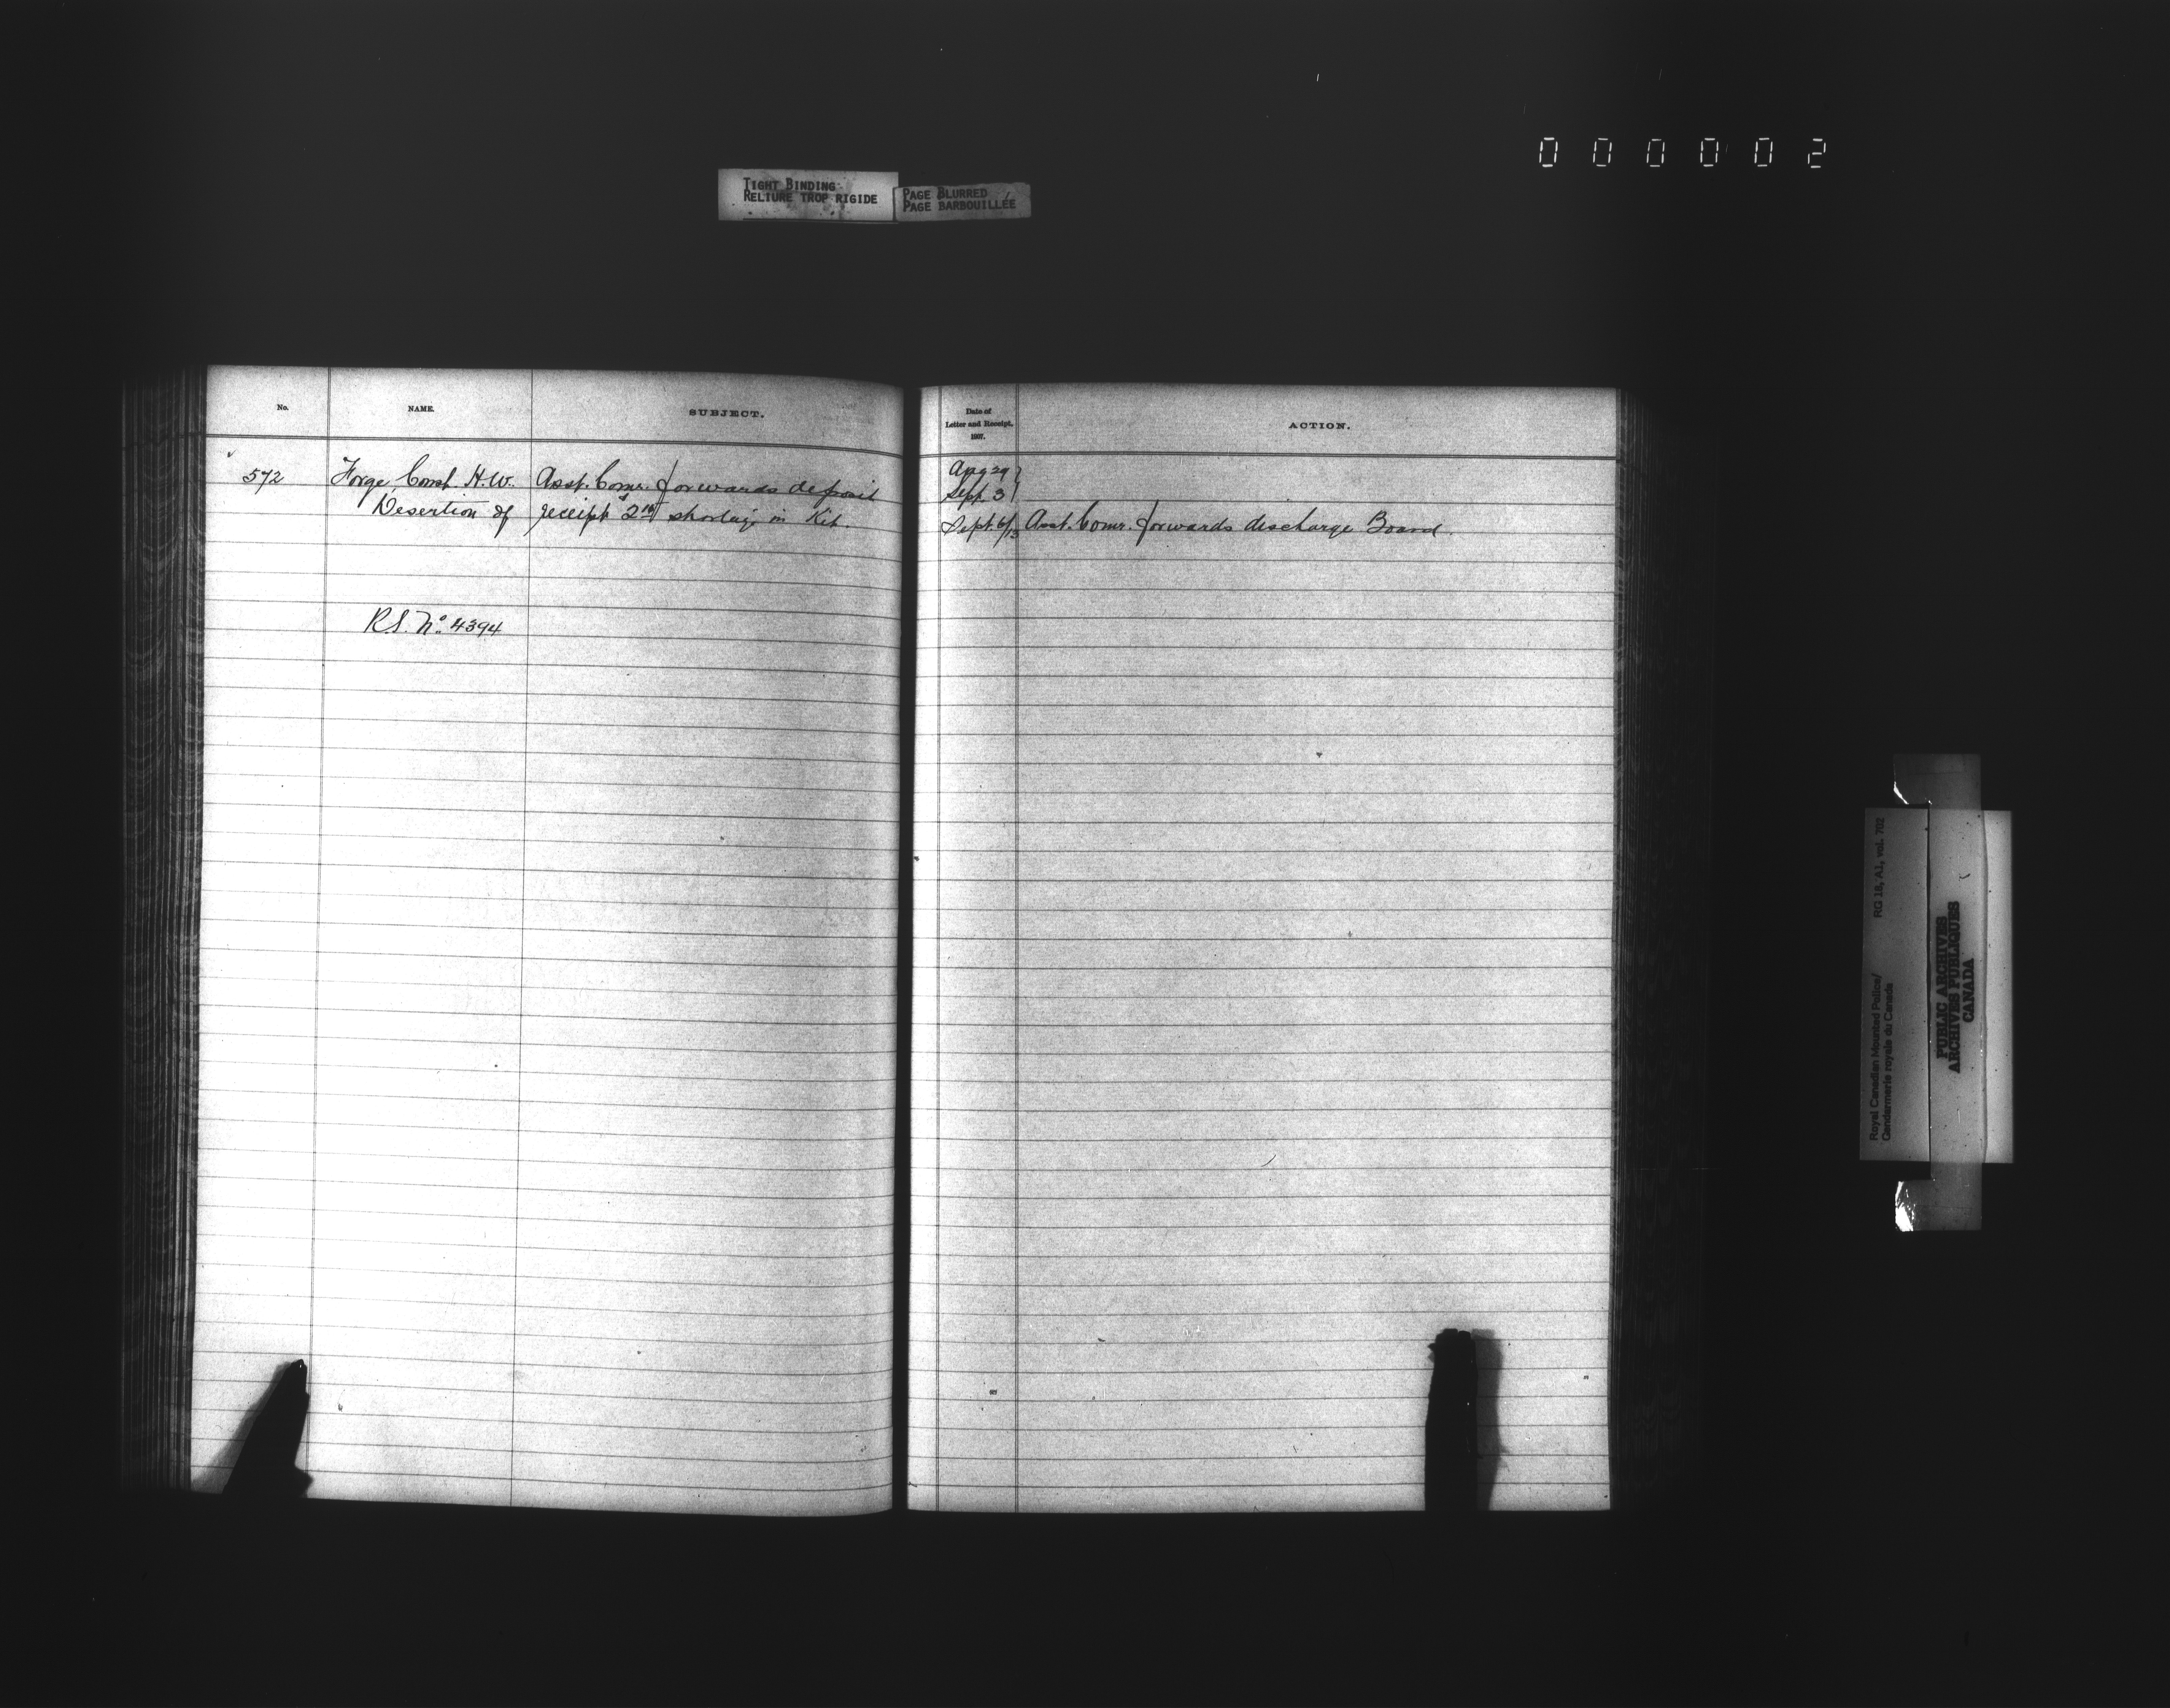 000002
TIGHT BINDING
RELIURE TROP RIGIDE
PAGE BLURRED
PAGE BARBOUILLÉE
No.
NAME.
SUBJECT.
572
Forge, Const. H.W.
Desertion of
R.S. No. 4394
Asst. Comr. forwards deposit
receipt shortage in Kit.
Date of
Letter and Receipt,
1907.
ACTION.
Aug 29
Sept. 3
Sept. 6/13 Asst. Comr. forwards discharge Board.
Royal Canadian Mounted Police/
Gendarmerie royale du Canada
RG 18, A1, vol. 702
PUBLIC ARCHIVES
ARCHIVES PUBLIQUES
CANADA